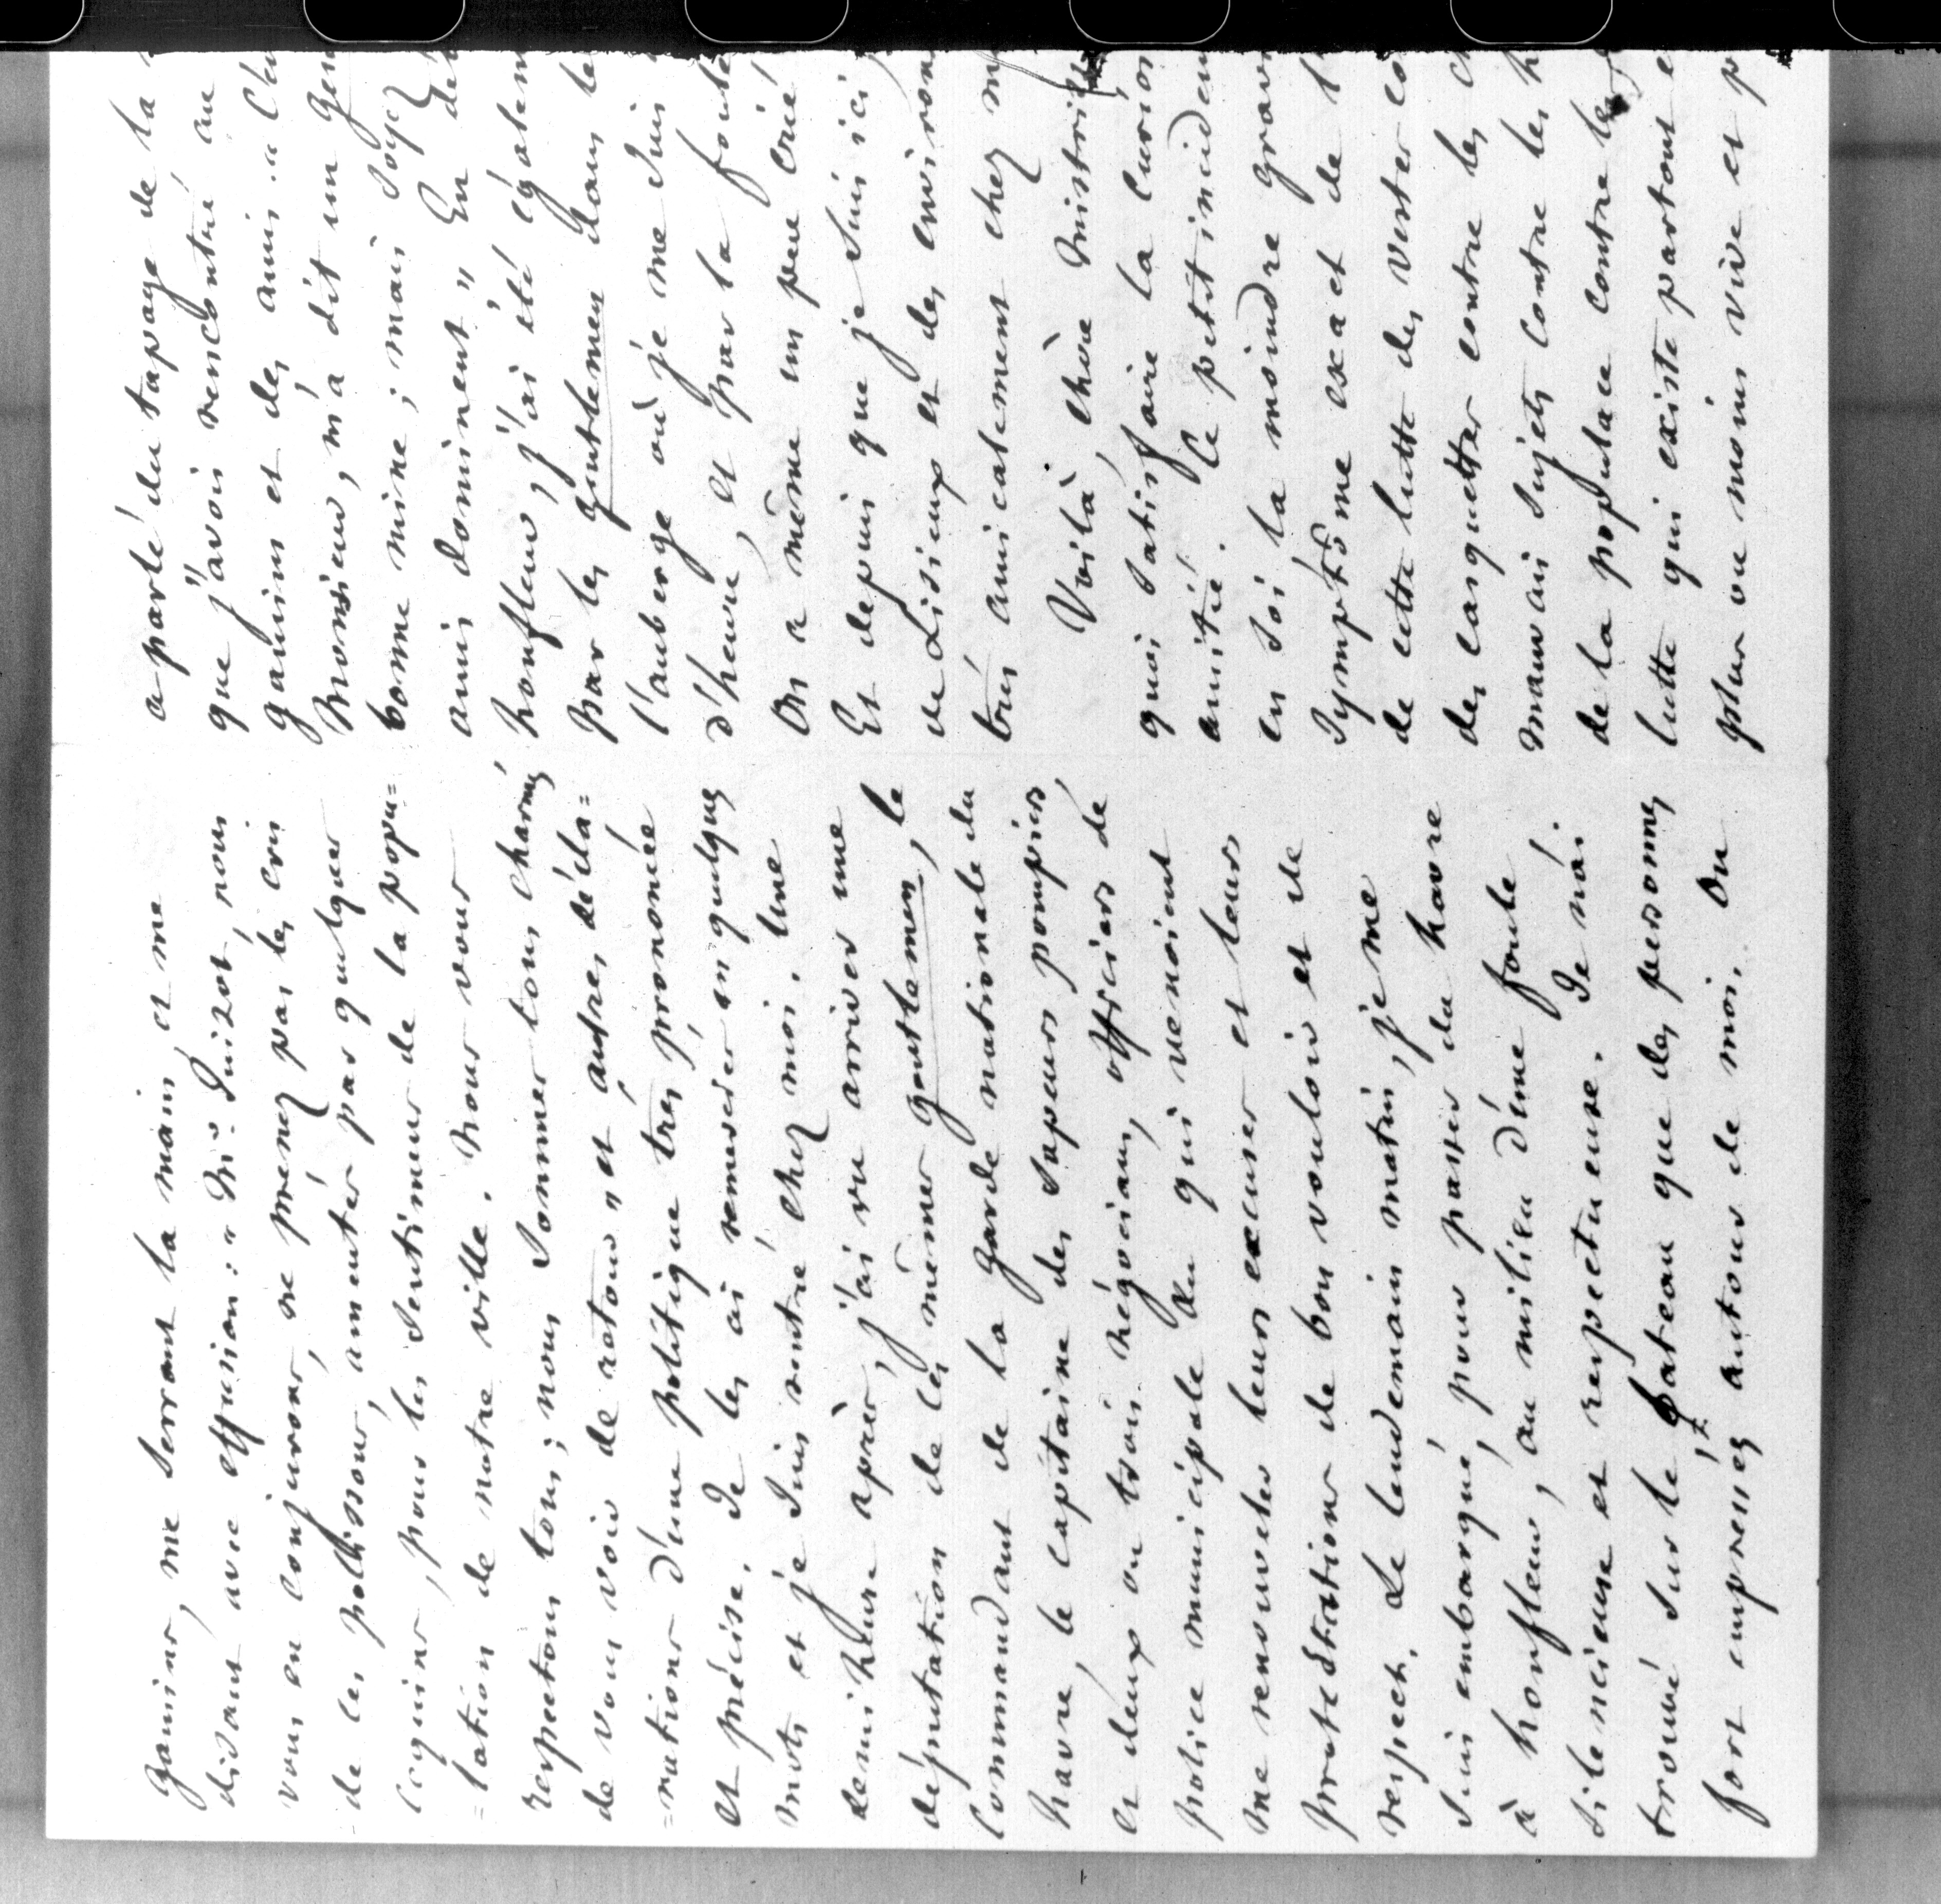 gamins, me serrant la main, et me
disant avec effusion: " Mr. Guizot, nous
vous en conjurons, ne prenez pas les cris
de ces polissons, ameutés par quelques
coquins, pour les sentimens de la popu=
=lation de notre ville. Nous vous
respectons tous; nous sommes tous charmés
de vous voir de retour " et autres décla=
=rations d'une politique très prononcée
et précise. Je les ai remerciés en quelques
mots et je suis rentré chez moi. Une
demi heure après, j'ai vu arriver une
députation de ces mêmes gentlemen, le
Commandant de la garde nationale du
havre, le capitaine des sapeurs pompiers,
et deux ou trois négocians, officiers de
police municipale &a qui venoient
me renouveler leurs excuses et leurs
protestations de bon vouloir et de
respect. Le lendemain matin, je me
suis embarqué, pour passer du havre
à honfleur, au milieu d'une foule
silencieuse et respectueuse. Je n'ai
trouvé sur le bateau que des personnes
fort empressées autour de moi. On
a parlé du tapage de la
que j'avois rencontré au
gamins et des amis. "
Monsieur, m'a dit un
bonne mine; mais soyez
amis dominent " En
honfleur, j'ai été
par les gentlemen dans
l'auberge où je me suis
d'heure, et par la foule
On a même un peu crié
Et depuis que je suis ici
de Lisieux et des
très amicalement chez
Voilà, chère
quoi satisfaire la
amitié. Ce petit
en soi la moindre
symptôme exact de
de cette lutte des vestes
des casquettes contre les
mauvais sujets contre les
de la populace contre les
lutte qui existe partout
plus ou moins vive et